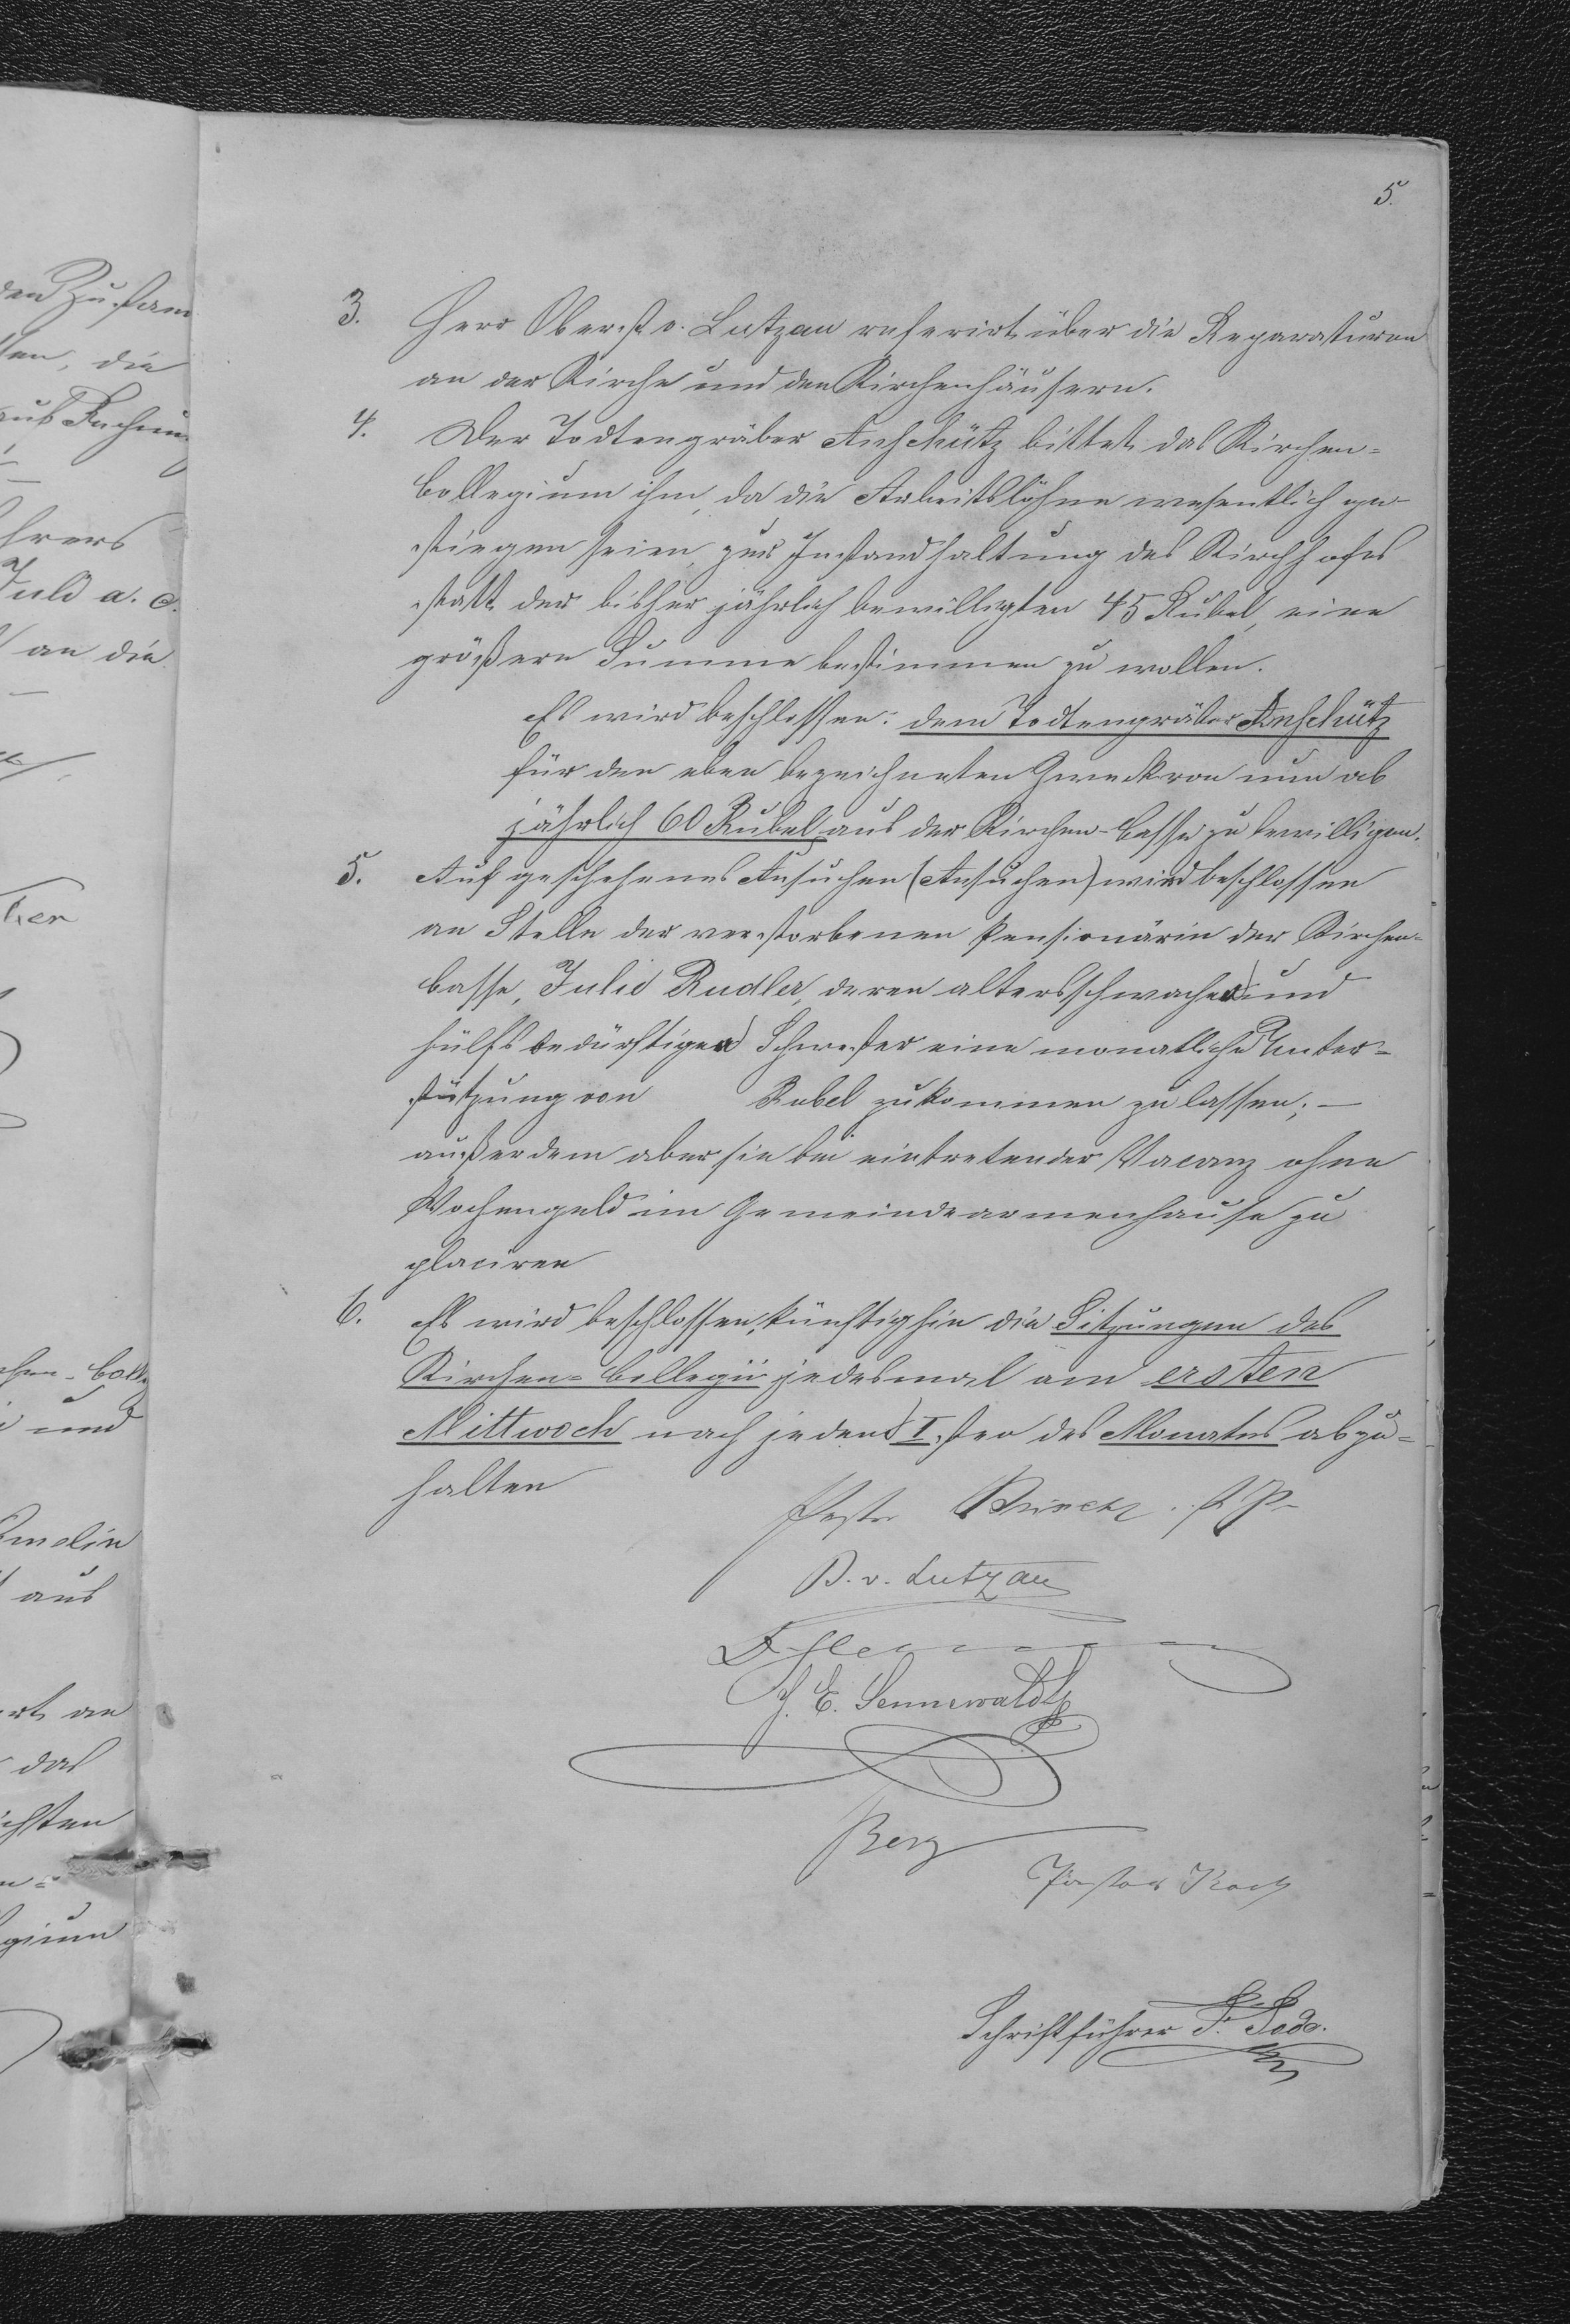 5.
3. Herr Oberst v. Lutzau referirt über die Reparaturen
an der Kirche und den Kirchenhäusern.
4. Der Todtengräber Anschütz bittet das Kirchen=
Collegium ihm, da die Arbeitslöhne wesentlich ge-
stiegen seien, zur Instandhaltung des Kirchhofes
statt der bisher jährlich bewilligten 45 Rubel, eine
größere Summe bestimmen zu wollen.
Es wird beschlossen: dem Todtengräber Anschütz
für den eben bezeichneten Zweck von nun ab
jährlich 60 Rubel aus der Kirchen-Casse zu bewilligen.
5. Auf geschehenes Ansuchen (Ansuchen) wird beschlossen
an Stelle der verstorbenen Pensionärin der Kirchen=
casse, Julie Rudler, deren altersschwacher und
hülfsbedürftigen Schwester eine monatliche Unter=
stützung von Rubel zukommen zu lassen; —
außerdem aber sie bei eintretender Vacanz ohne
Wochengeld im Gemeindearmenhause zu
placiren
6. Es wird beschlossen, künftighin die Sitzungen des
Kirchen=Collegii jedesmal am ersten
Mittwoch nach jedem I.sten des Monates abzu=
halten
Pastor
B. v. Lutzau
J. E. Sennewaldt
Berg
Pastor Koch
Schriftführer F.
den Zusam
die
hrers
Juli a. c.
an die
hen-Coll
und
aus
an
das
chsten
gium